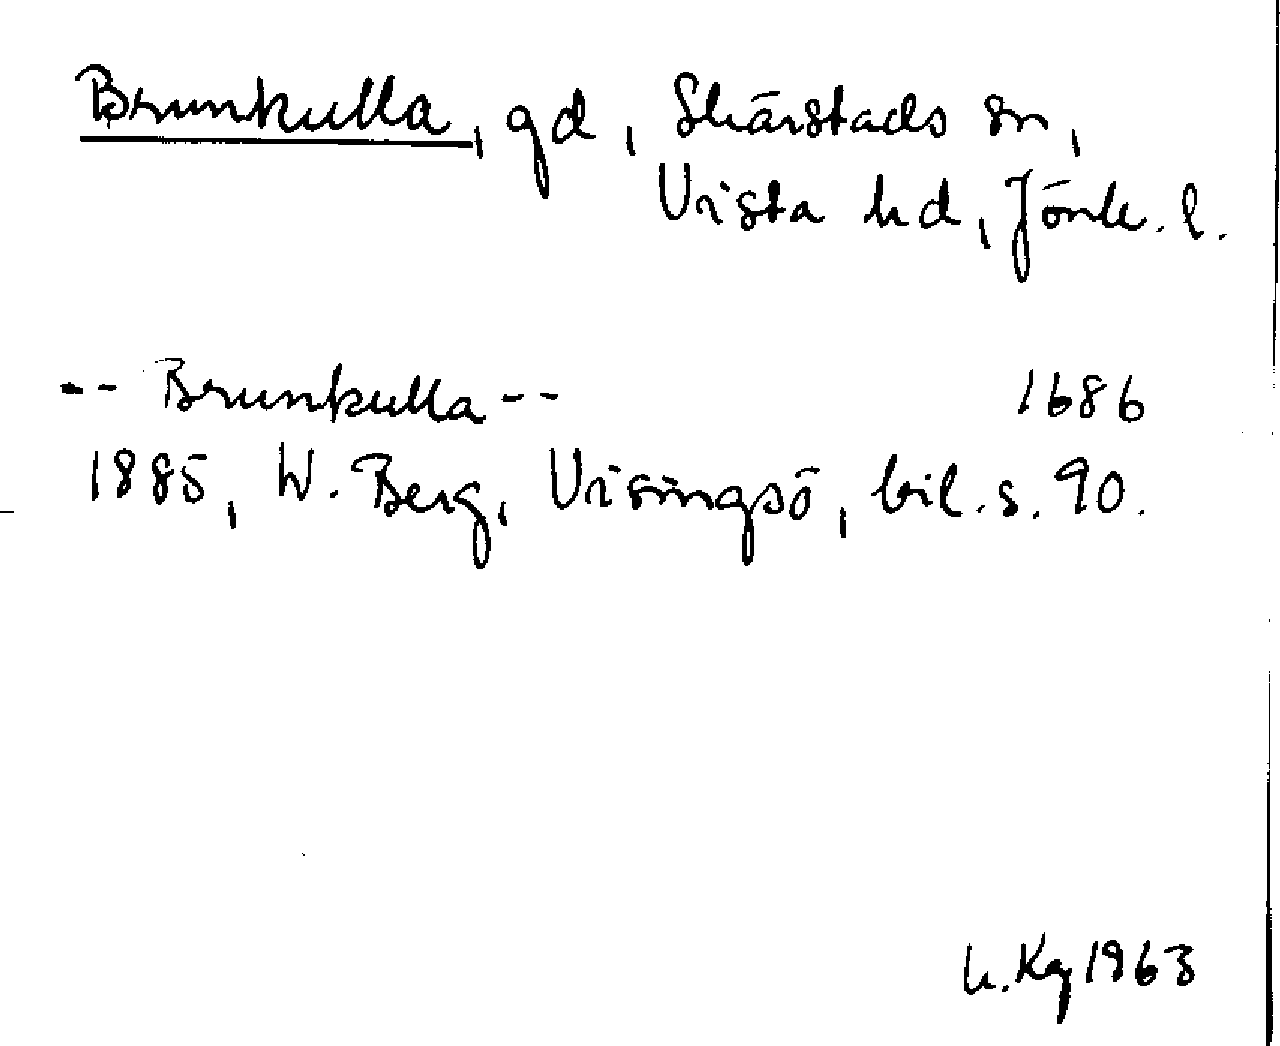 Brunkulla, gd, Skärstads sn,
Vista hd, Jönk. l.
-- Brunkulla -- 1686
1885, W. Berg, Visingsö, bil. s. 90.
h. Kg 1963